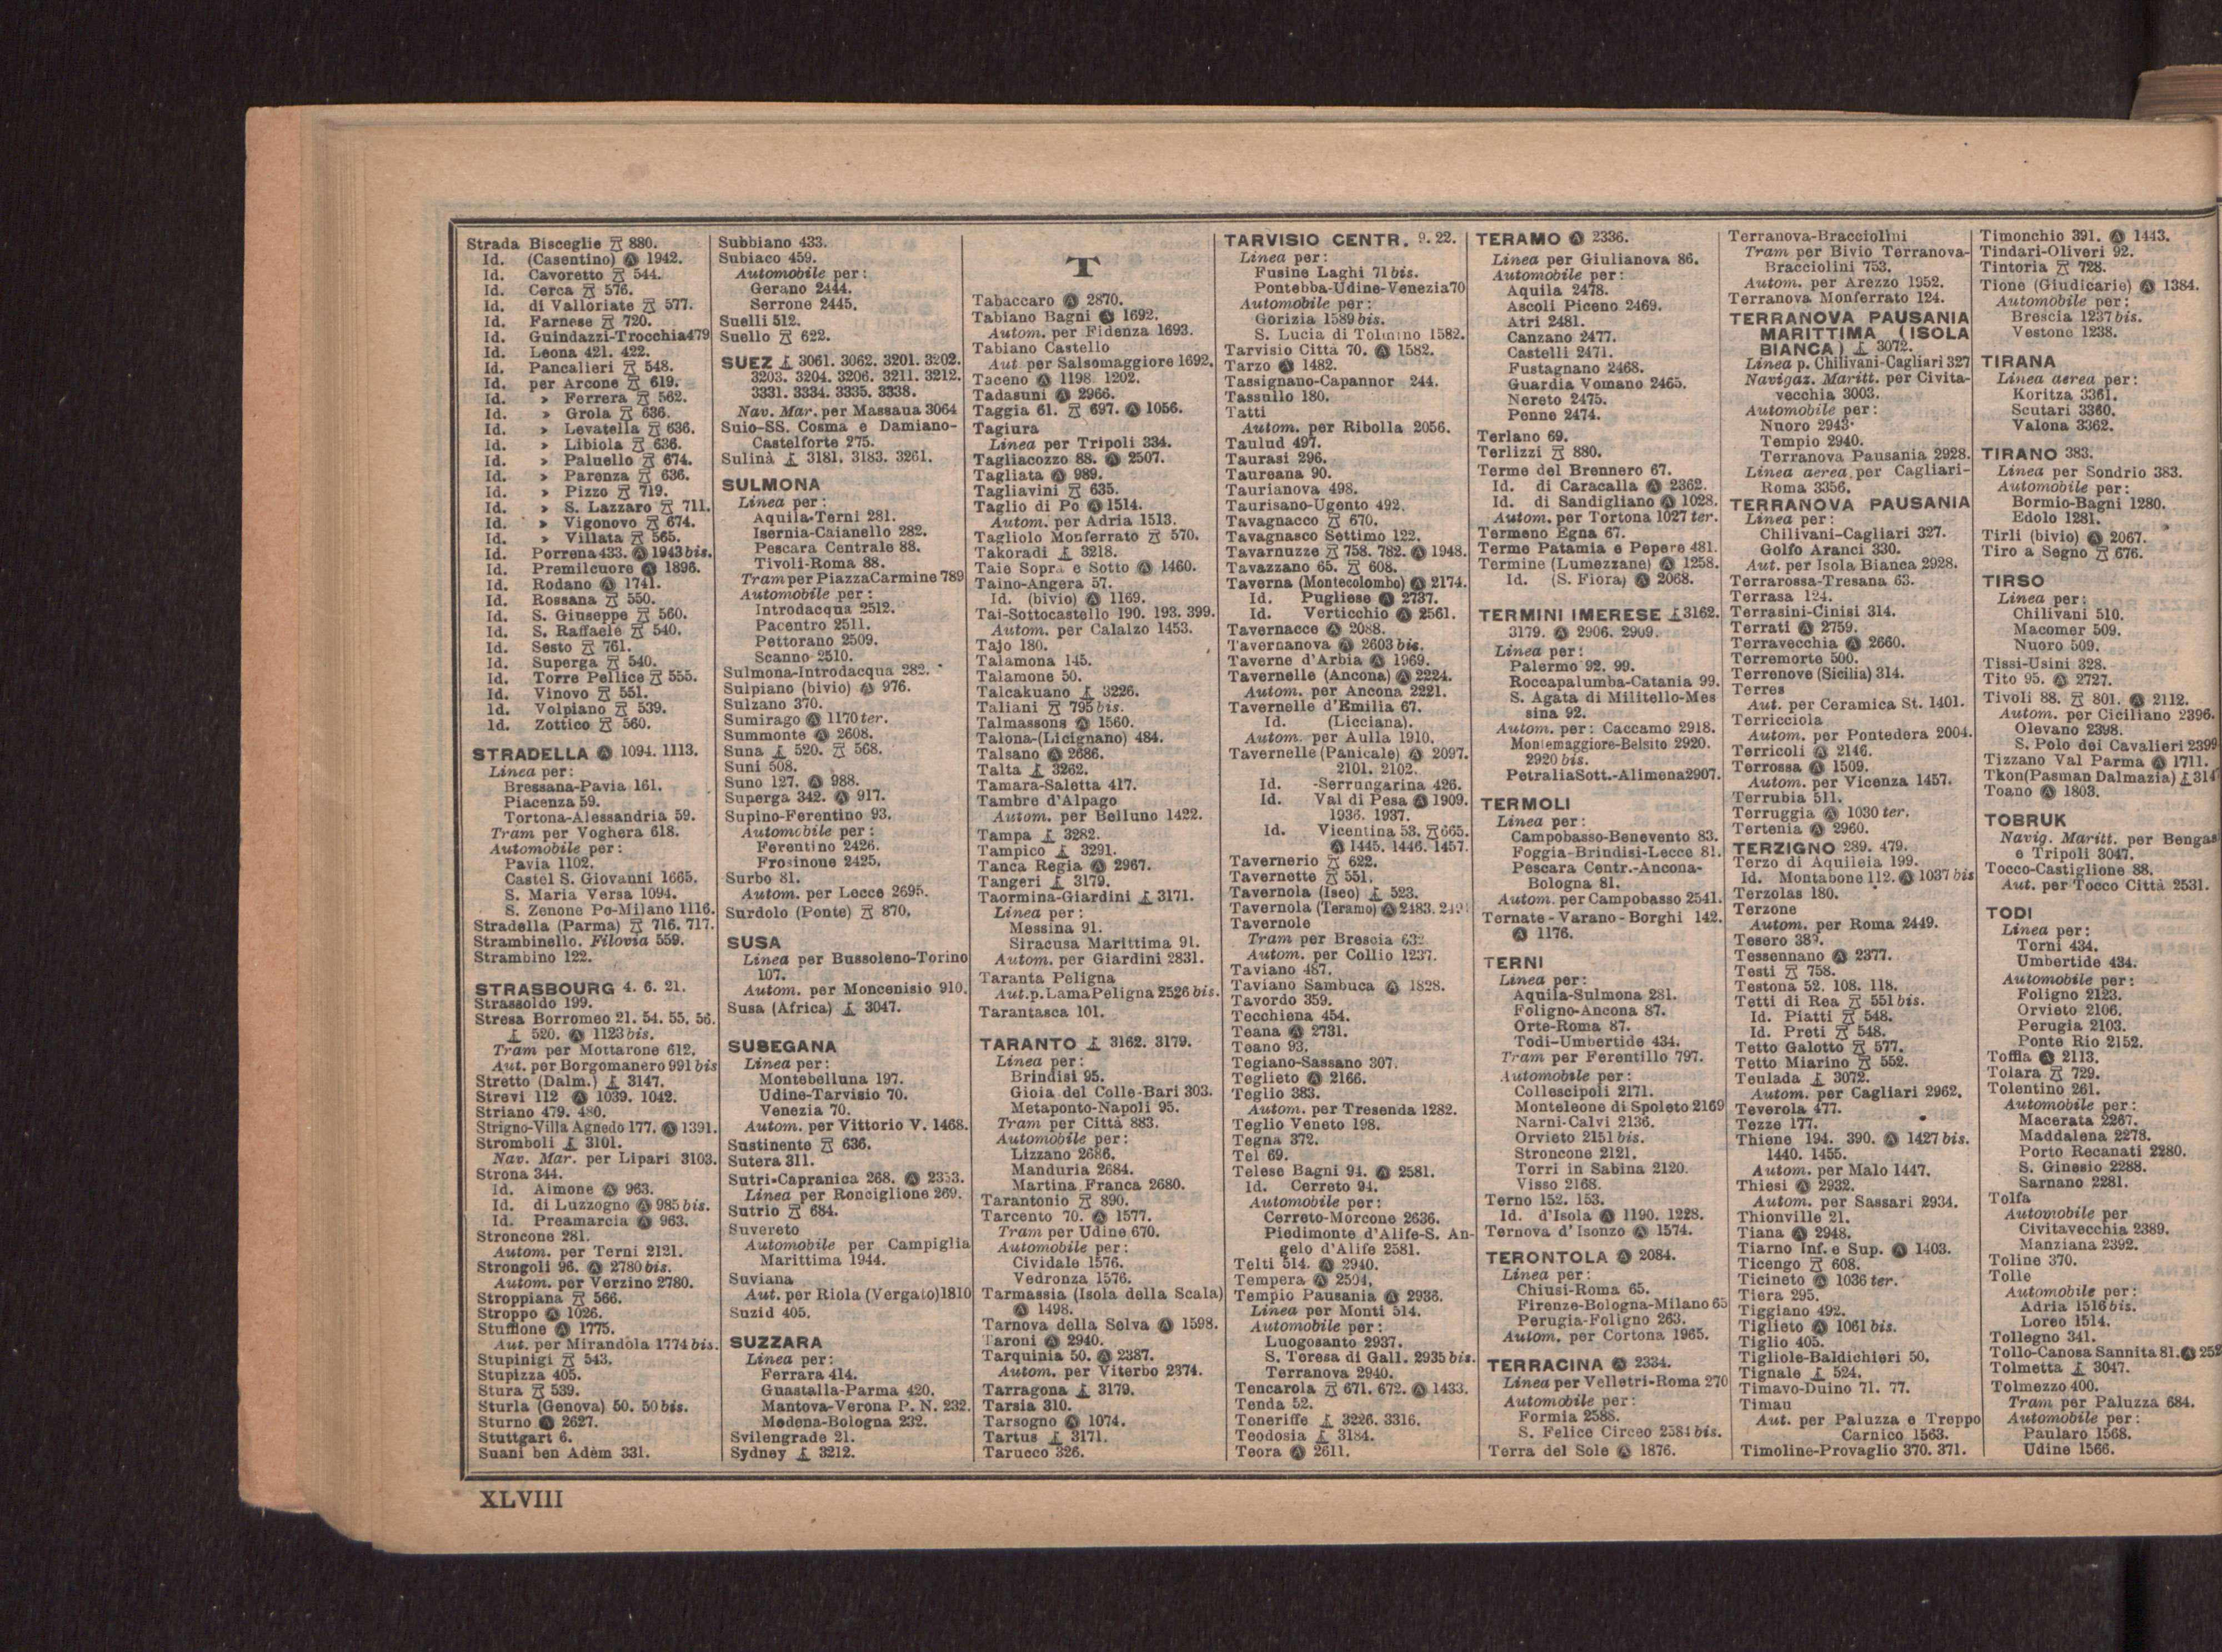 Strada Bisceglie 880.
Id. (Casentino) Ⓐ 1942.
Id. Cavoretto 544.
Id. Cerca 576.
Id. di Valloriate 577.
Id. Farnese 720.
Id. Guindazzi-Trocchia 479
Id. Leona 421. 422.
Id. Pancalieri 548.
Id. per Arcone 619.
Id. » Ferrera 562.
Id. » Grola 636.
Id. » Levatella 636.
Id. » Libiola 636.
Id. » Paluello 674.
Id. » Parenza 636.
Id. » Pizzo 719.
Id. » S. Lazzaro 711.
Id. » Vigonovo 674.
Id. » Villata 565.
Id. Porrena 433. Ⓐ 1943 bis.
Id. Premilcuore Ⓐ 1896.
Id. Rodano Ⓐ 1741.
Id. Rossana 550.
Id. S. Giuseppe 560.
Id. S. Raffaele 540.
Id. Sesto 761.
Id. Superga 540.
Id. Torre Pellice 555.
Id. Vinovo 551.
Id. Volpiano 539.
Id. Zottico 560.
STRADELLA Ⓐ 1094. 1113.
Linea per:
Bressana-Pavia 161.
Piacenza 59.
Tortona-Alessandria 59.
Tram per Voghera 618.
Automobile per:
Pavia 1102.
Castel S. Giovanni 1665.
S. Maria Versa 1094.
S. Zenone Po-Milano 1116.
Stradella (Parma) 716. 717.
Strambinello. Filovia 559.
Strambino 122.
STRASBOURG 4. 6. 21.
Strassoldo 199.
Stresa Borromeo 21. 54. 55. 56.
520. Ⓐ 1123 bis.
Tram per Mottarone 612.
Aut. per Borgomanero 991 bis
Stretto (Dalm.) 3147.
Strevi 112 Ⓐ 1039. 1042.
Striano 479. 480.
Strigno-Villa Agnedo 177. Ⓐ 1391.
Stromboli 3101.
Nav. Mar. per Lipari 3103.
Strona 344.
Id. Aimone Ⓐ 963.
Id. di Luzzogno Ⓐ 985 bis.
Id. Preamarcia Ⓐ 963.
Stroncone 281.
Autom. per Terni 2121.
Strongoli 96. Ⓐ 2780 bis.
Autom. per Verzino 2780.
Stroppiana 566.
Stroppo Ⓐ 1026.
Stuffione Ⓐ 1775.
Aut. per Mirandola 1774 bis.
Stupinigi 543.
Stupizza 405.
Stura 539.
Sturla (Genova) 50. 50 bis.
Sturno Ⓐ 2627.
Stuttgart 6.
Suani ben Adèm 331.
Subbiano 433.
Subiaco 459.
Automobile per:
Gerano 2444.
Serrone 2445.
Suelli 512.
Suello 622.
SUEZ 3061. 3062. 3201. 3202.
3203. 3204. 3206. 3211. 3212.
3331. 3334. 3335. 3338.
Nav. Mar. per Massaua 3064
Suio-SS. Cosma e Damiano-
Castelforte 275.
Sulinà 3181. 3183. 3261.
SULMONA
Linea per:
Aquila-Terni 281.
Isernia-Caianello 282.
Pescara Centrale 88.
Tivoli-Roma 88.
Tram per Piazza Carmine 789
Automobile per:
Introdacqua 2512.
Pacentro 2511.
Pettorano 2509.
Scanno 2510.
Sulmona-Introdacqua 282.
Sulpiano (bivio) Ⓐ 976.
Sulzano 370.
Sumirago Ⓐ 1170 ter.
Summonte Ⓐ 2608.
Suna 520. 568.
Suni 508.
Suno 127. Ⓐ 988.
Superga 342. Ⓐ 917.
Supino-Ferentino 93.
Automobile per:
Ferentino 2426.
Frosinone 2425.
Surbo 81.
Autom. per Lecce 2695.
Surdolo (Ponte) 870.
SUSA
Linea per Bussoleno-Torino
107.
Autom. per Moncenisio 910.
Susa (Africa) 3047.
SUSEGANA
Linea per:
Montebelluna 197.
Udine-Tarvisio 70.
Venezia 70.
Autom. per Vittorio V. 1468.
Sustinente 636.
Sutera 311.
Sutri-Capranica 268. Ⓐ 2353.
Linea per Ronciglione 269.
Sutrio 684.
Suvereto
Automobile per Campiglia
Marittima 1944.
Suviana
Aut. per Riola (Vergato) 1810
Suzid 405.
SUZZARA
Linea per:
Ferrara 414.
Guastalla-Parma 420.
Mantova-Verona P. N. 232.
Modena-Bologna 232.
Svilengrade 21.
Sydney 3212.
T
Tabaccaro Ⓐ 2870.
Tabiano Bagni Ⓐ 1692.
Autom. per Fidenza 1693.
Tabiano Castello
Aut. per Salsomaggiore 1692.
Taceno Ⓐ 1198. 1202.
Tadasuni Ⓐ 2966.
Taggia 61. 697. Ⓐ 1056.
Tagiura
Linea per Tripoli 334.
Tagliacozzo 88. Ⓐ 2507.
Tagliata Ⓐ 989.
Tagliavini 635.
Taglio di Po Ⓐ 1514.
Autom. per Adria 1513.
Tagliolo Monferrato 570.
Takoradi 3218.
Taie Sopra e Sotto Ⓐ 1460.
Taino-Angera 57.
Id. (bivio) Ⓐ 1169.
Tai-Sottocastello 190. 193. 399.
Autom. per Calalzo 1453.
Tajo 180.
Talamona 145.
Talamone 50.
Talcakuano 3226.
Taliani 795 bis.
Talmassons Ⓐ 1560.
Talona-(Licignano) 484.
Talsano Ⓐ 2686.
Talta 3262.
Tamara-Saletta 417.
Tambre d'Alpago
Autom. per Belluno 1422.
Tampa 3282.
Tampico 3291.
Tanca Regia Ⓐ 2967.
Tangeri 3179.
Taormina-Giardini 3171.
Linea per:
Messina 91.
Siracusa Marittima 91.
Autom. per Giardini 2831.
Taranta Peligna
Aut. p. Lama Peligna 2526 bis.
Tarantasca 101.
TARANTO 3162. 3179.
Linea per:
Brindisi 95.
Gioia del Colle-Bari 303.
Metaponto-Napoli 95.
Tram per Città 883.
Automobile per:
Lizzano 2686.
Manduria 2684.
Martina Franca 2680.
Tarantonio 890.
Tarcento 70. Ⓐ 1577.
Tram per Udine 670.
Automobile per:
Cividale 1576.
Vedronza 1576.
Tarmassia (Isola della Scala)
Ⓐ 1498.
Tarnova della Selva Ⓐ 1598.
Taroni Ⓐ 2940.
Tarquinia 50. Ⓐ 2387.
Autom. per Viterbo 2374.
Tarragona 3179.
Tarsia 310.
Tarsogno Ⓐ 1074.
Tartus 3171.
Tarucco 326.
TARVISIO CENTR. 9. 22.
Linea per:
Fusine Laghi 71 bis.
Pontebba-Udine-Venezia 70
Automobile per:
Gorizia 1589 bis.
S. Lucia di Tolmino 1582.
Tarvisio Città 70. Ⓐ 1582.
Tarzo Ⓐ 1482.
Tassignano-Capannor 244.
Tassullo 180.
Tatti
Autom. per Ribolla 2056.
Taulud 497.
Taurasi 296.
Taureana 90.
Taurianova 498.
Taurisano-Ugento 492.
Tavagnacco 670.
Tavagnasco Settimo 122.
Tavarnuzze 758. 782. Ⓐ 1948.
Tavazzano 65. 608.
Taverna (Montecolombo) Ⓐ 2174.
Id. Pugliese Ⓐ 2737.
Id. Verticchio Ⓐ 2561.
Tavernacce Ⓐ 2088.
Tavernanova Ⓐ 2603 bis.
Taverne d'Arbia Ⓐ 1969.
Tavernelle (Ancona) Ⓐ 2224.
Autom. per Ancona 2221.
Tavernelle d'Emilia 67.
Id. (Licciana).
Autom. per Aulla 1910.
Tavernelle (Panicale) Ⓐ 2097.
2101. 2102.
Id. -Serrungarina 426.
Id. Val di Pesa Ⓐ 1909.
1936. 1937.
Id. Vicentina 53. 665.
Ⓐ 1445. 1446. 1457.
Tavernerio 622.
Tavernette 551.
Tavernola (Iseo) 523.
Tavernola (Teramo) Ⓐ 2483.
Tavernole
Tram per Brescia 632
Autom. per Collio 1237.
Taviano 487.
Taviano Sambuca Ⓐ 1828.
Tavordo 359.
Tecchiena 454.
Teana Ⓐ 2731.
Teano 93.
Tegiano-Sassano 307.
Teglieto Ⓐ 2166.
Teglio 383.
Autom. per Tresenda 1282.
Teglio Veneto 198.
Tegna 372.
Tel 69.
Telese Bagni 94. Ⓐ 2581.
Id. Cerreto 94.
Automobile per:
Cerreto-Morcone 2636.
Piedimonte d'Alife-S. An-
gelo d'Alife 2581.
Telti 514. Ⓐ 2940.
Tempera Ⓐ 2504.
Tempio Pausania Ⓐ 2936.
Linea per Monti 514.
Automobile per:
Luogosanto 2937.
S. Teresa di Gall. 2935 bis.
Terranova 2940.
Tencarola 671. 672. Ⓐ 1433.
Tenda 52.
Teneriffe 3226. 3316.
Teodosia 3184.
Teora Ⓐ 2611.
TERAMO Ⓐ 2336.
Linea per Giulianova 86.
Automobile per:
Aquila 2478.
Ascoli Piceno 2469.
Atri 2481.
Canzano 2477.
Castelli 2471.
Fustagnano 2468.
Guardia Vomano 2465.
Nereto 2475.
Penne 2474.
Terlano 69.
Terlizzi 880.
Terme del Brennero 67.
Id. di Caracalla Ⓐ 2362.
Id. di Sandigliano Ⓐ 1028.
Autom. per Tortona 1027 ter.
Termeno Egna 67.
Terme Patamia e Pepere 481.
Termine (Lumezzane) Ⓐ 1258.
Id. (S. Fiora) Ⓐ 2068.
TERMINI IMERESE 3162.
3179. Ⓐ 2906. 2909.
Linea per:
Palermo 92. 99.
Roccapalumba-Catania 99.
S. Agata di Militello-Mes
sina 92.
Autom. per: Caccamo 2918.
Montemaggiore-Belsito 2920.
2920 bis.
Petralia Sott.-Alimena 2907.
TERMOLI
Linea per:
Campobasso-Benevento 83.
Foggia-Brindisi-Lecce 81.
Pescara Centr.-Ancona-
Bologna 81.
Autom. per Campobasso 2541.
Ternate-Varano-Borghi 142.
Ⓐ 1176.
TERNI
Linea per:
Aquila-Sulmona 281.
Foligno-Ancona 87.
Orte-Roma 87.
Todi-Umbertide 434.
Tram per Ferentillo 797.
Automobile per:
Collescipoli 2171.
Monteleone di Spoleto 2169
Narni-Calvi 2136.
Orvieto 2151 bis.
Stroncone 2121.
Torri in Sabina 2120.
Visso 2168.
Terno 152. 153.
Id. d'Isola Ⓐ 1190. 1228.
Ternova d'Isonzo Ⓐ 1574.
TERONTOLA Ⓐ 2084.
Linea per:
Chiusi-Roma 65.
Firenze-Bologna-Milano 65
Perugia-Foligno 263.
Autom. per Cortona 1965.
TERRACINA Ⓐ 2334.
Linea per Velletri-Roma 270
Automobile per:
Formia 2588.
S. Felice Circeo 2584 bis.
Terra del Sole Ⓐ 1876.
Terranova-Bracciolini
Tram per Bivio Terranova-
Bracciolini 753.
Autom. per Arezzo 1952.
Terranova Monferrato 124.
TERRANOVA PAUSANIA
MARITTIMA (ISOLA
BIANCA) 3072.
Linea p. Chilivani-Cagliari 327
Navigaz. Maritt. per Civita-
vecchia 3003.
Automobile per:
Nuoro 2943.
Tempio 2940.
Terranova Pausania 2928.
Linea aerea per Cagliari-
Roma 3356.
TERRANOVA PAUSANIA
Linea per:
Chilivani-Cagliari 327.
Golfo Aranci 330.
Aut. per Isola Bianca 2928.
Terrarossa-Tresana 63.
Terrasa 124.
Terrasini-Cinisi 314.
Terrati Ⓐ 2759.
Terravecchia Ⓐ 2660.
Terremorte 500.
Terrenove (Sicilia) 314.
Terres
Aut. per Ceramica St. 1401.
Terricciola
Autom. per Pontedera 2004.
Terricoli Ⓐ 2146.
Terrossa Ⓐ 1509.
Autom. per Vicenza 1457.
Terrubia 511.
Terruggia Ⓐ 1030 ter.
Tertenia Ⓐ 2960.
TERZIGNO 289. 479.
Terzo di Aquileia 199.
Id. Montabone 112. Ⓐ 1037 bis
Terzolas 180.
Terzone
Autom. per Roma 2449.
Tesero 387.
Tessennano Ⓐ 2377.
Testi 758.
Testona 52. 108. 118.
Tetti di Rea 551 bis.
Id. Piatti 548.
Id. Preti 548.
Tetto Galotto 577.
Tetto Miarino 552.
Teulada 3072.
Autom. per Cagliari 2962.
Teverola 477.
Tezze 177.
Thiene 194. 390. Ⓐ 1427 bis.
1440. 1455.
Autom. per Malo 1447.
Thiesi Ⓐ 2932.
Autom. per Sassari 2934.
Thionville 21.
Tiana Ⓐ 2948.
Tiarno Inf. e Sup. Ⓐ 1403.
Ticengo 608.
Ticineto Ⓐ 1036 ter.
Tiera 295.
Tiggiano 492.
Tiglieto Ⓐ 1061 bis.
Tiglio 405.
Tigliole-Baldichieri 50.
Tignale 524.
Timavo-Duino 71. 77.
Timau
Aut. per Paluzza e Treppo
Carnico 1563.
Timoline-Provaglio 370. 371.
Timonchio 391. Ⓐ 1443.
Tindari-Oliveri 92.
Tintoria 728.
Tione (Giudicarie) Ⓐ 1384.
Automobile per:
Brescia 1237 bis.
Vestone 1238.
TIRANA
Linea aerea per:
Koritza 3361.
Scutari 3360.
Valona 3362.
TIRANO 383.
Linea per Sondrio 383.
Automobile per:
Bormio-Bagni 1280.
Edolo 1281.
Tirli (bivio) Ⓐ 2067.
Tiro a Segno 676.
TIRSO
Linea per:
Chilivani 510.
Macomer 509.
Nuoro 509.
Tissi-Usini 328.
Tito 95. Ⓐ 2727.
Tivoli 88. 801. Ⓐ 2112.
Autom. per Ciciliano 2396.
Olevano 2398.
S. Polo dei Cavalieri 2399
Tizzano Val Parma Ⓐ 1711.
Tkon (Pasman Dalmazia) 314
Toano Ⓐ 1803.
TOBRUK
Navig. Maritt. per Bengas
e Tripoli 3047.
Tocco-Castiglione 88.
Aut. per Tocco Città 2531.
TODI
Linea per:
Terni 434.
Umbertide 434.
Automobile per:
Foligno 2123.
Orvieto 2106.
Perugia 2103.
Ponte Rio 2152.
Toffia Ⓐ 2113.
Tolara 729.
Tolentino 261.
Automobile per:
Macerata 2267.
Maddalena 2278.
Porto Recanati 2280.
S. Ginesio 2288.
Sarnano 2281.
Tolfa
Automobile per
Civitavecchia 2389.
Manziana 2392.
Toline 370.
Tolle
Automobile per:
Adria 1516 bis.
Loreo 1514.
Tollegno 341.
Tollo-Canosa Sannita 81. Ⓐ 252
Tolmetta 3047.
Tolmezzo 400.
Tram per Paluzza 684.
Automobile per:
Paularo 1568.
Udine 1566.
XLVIII